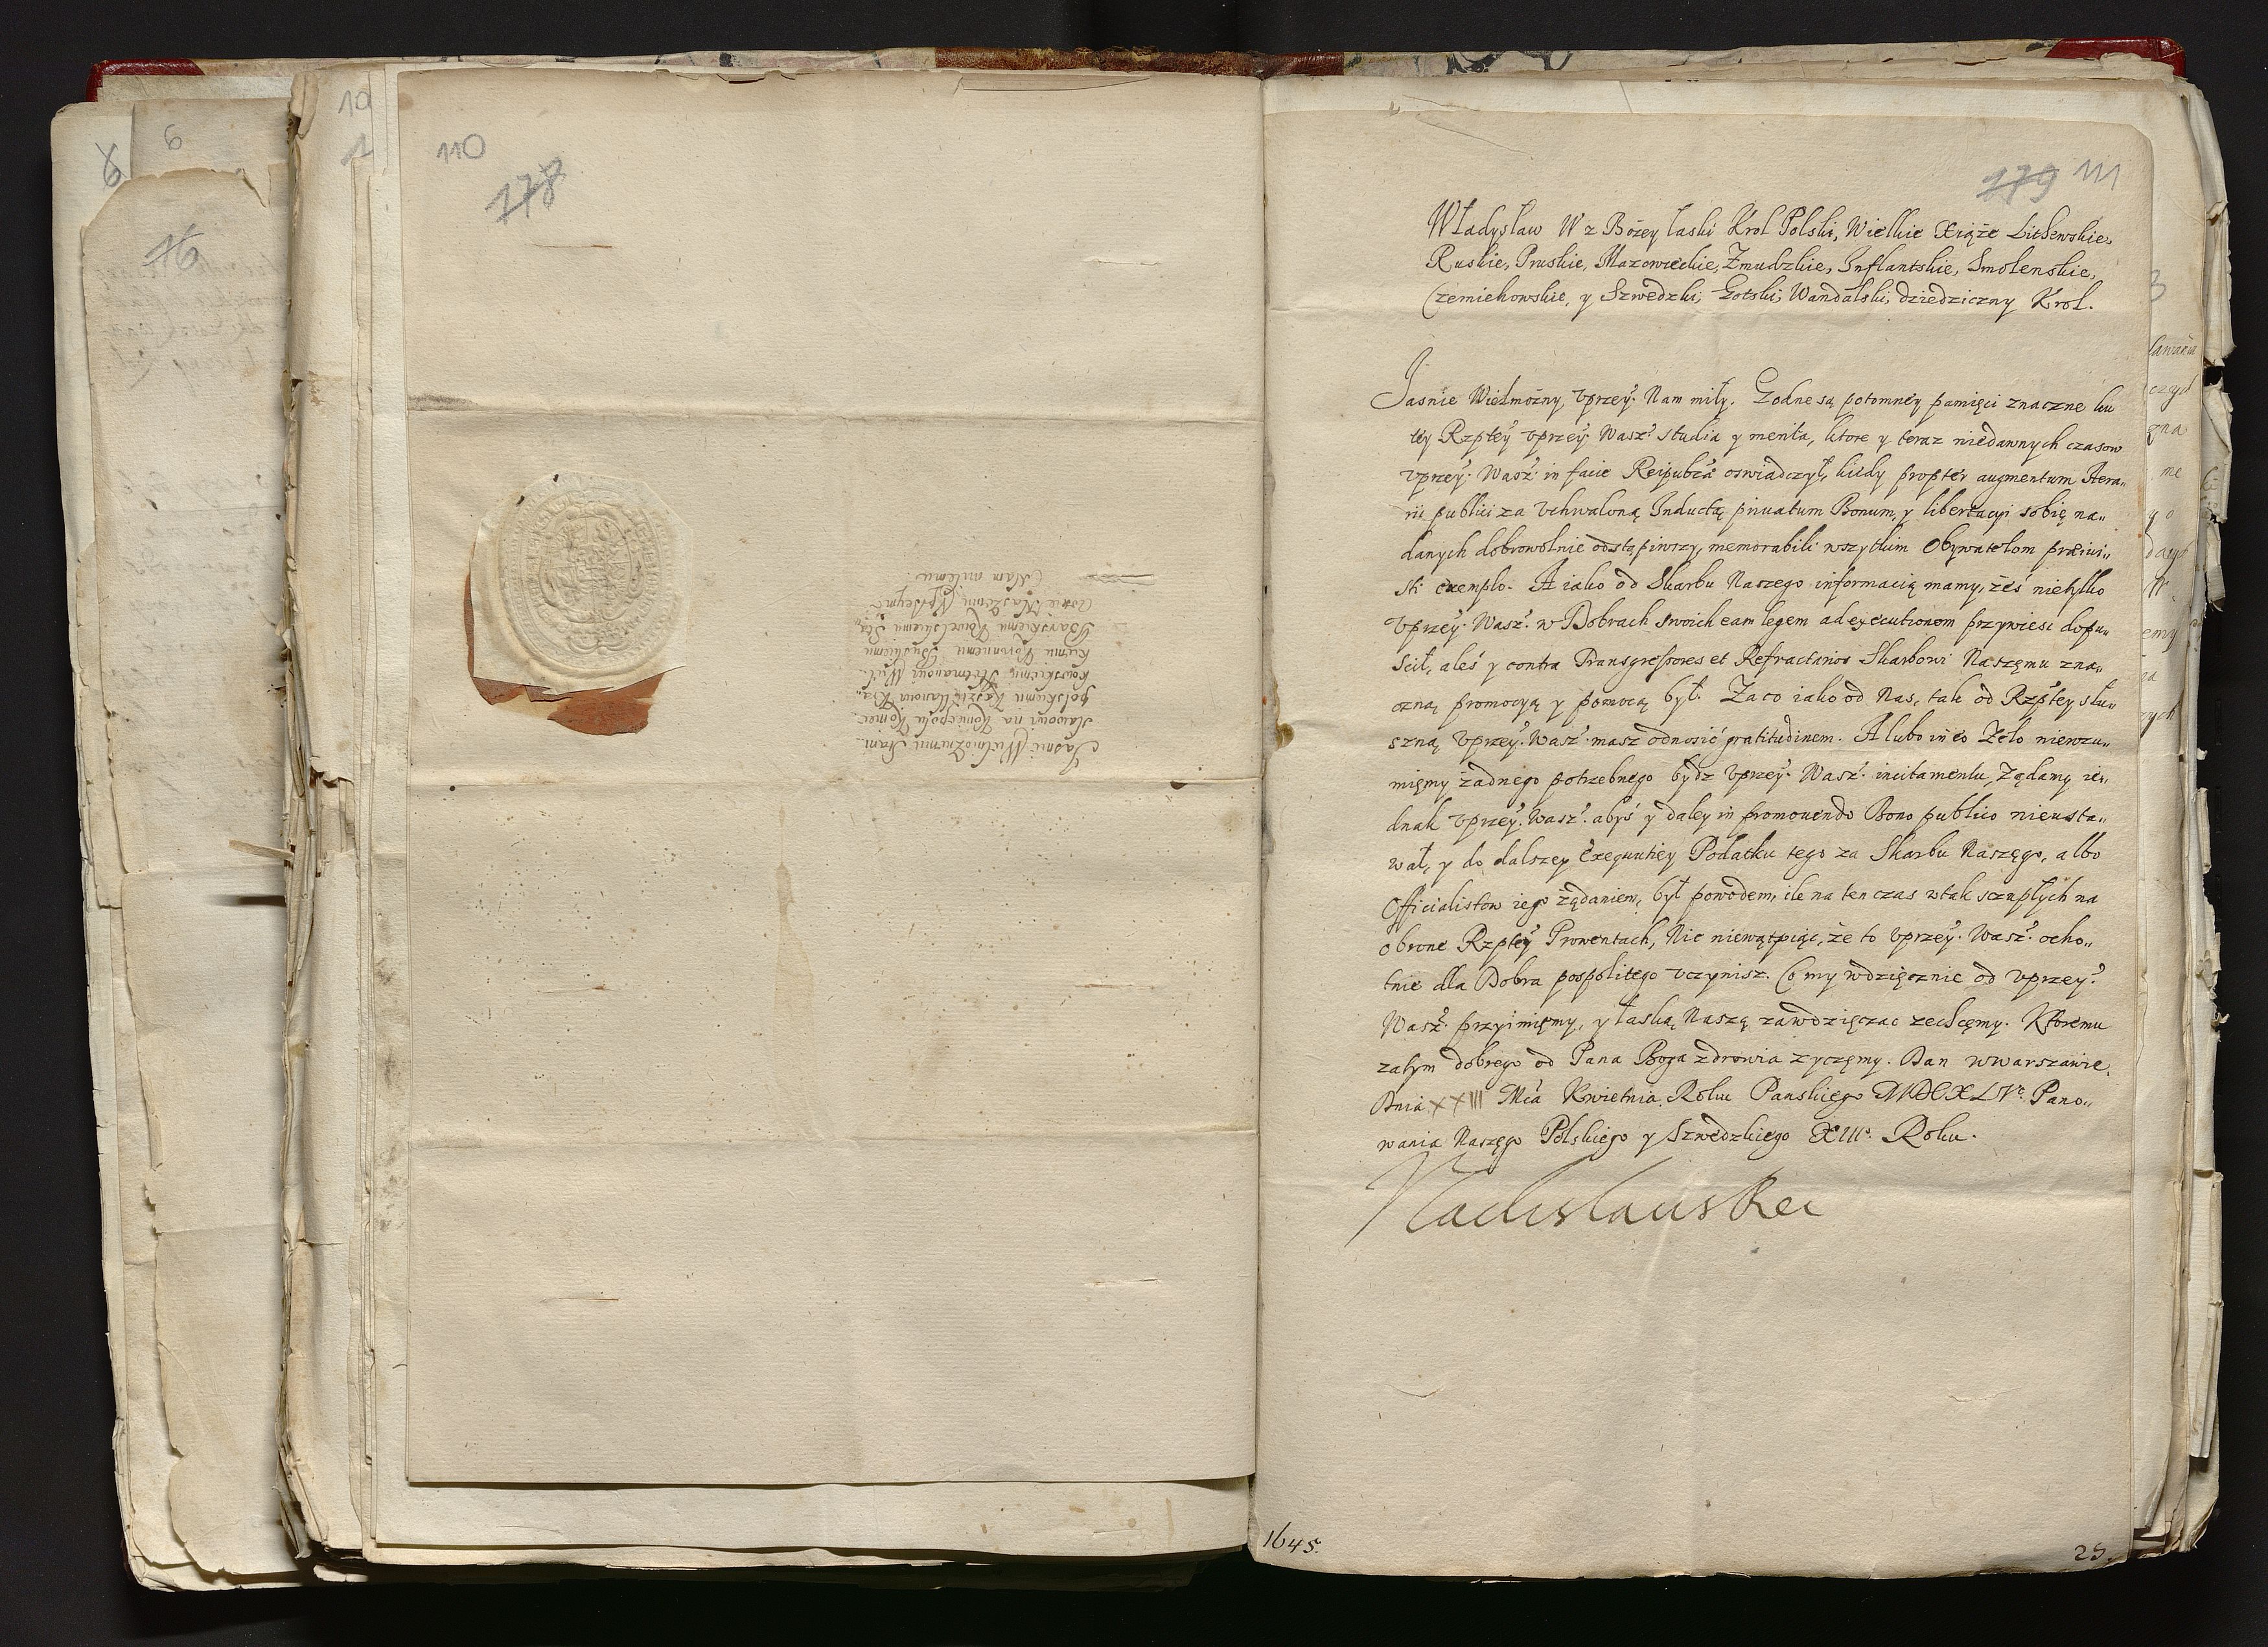 110
178
Jaśnie Wielmożnemu Stani„
sławowi na Koniecpolu Koniec„
polskiemu Kasztellanowi Kra„
kowskiemu, Hetmanowi Wiel„
kiemu Koronnemu Buskiemu
Barskiemu Kowelskiemu Sta„
roscie Naszemu Uprzeyme
Nam milemu.
179 111
Władysław IV z Bozey łaski Krol Polski, Wielkie Xiąże Lithewskie,
Ruskie, Pruskie, Mazowieckie, Zmudzkie, Inflantskie, Smolenskie,
Czerniehowskie, y Szwedzki, Gotski, Wandalski, dziedziczny Krol.
Jasnie Wielmożny, vprzey. Nam miły. Godne są potomney pamięci znaczne ku
tey Rzptey vprzey. Wasz. studia y merita, ktore y teraz niedawnych czasow
vprzey. Wasz. in facie Reipubcæ oswiadczył, kiedy propter augmentum Aera„
rii publici za Vchwaloną Inductą priuatum Bonum, y libertacyi sobię na„
danych dobrowolnie odstąpiwszy, memorabili wszytkim Obywatelom præiui„
sti exemplo. A iako od Skarbu Naszego informacią mamy, żeś nietylko
Vprzey. Wasz. w Dobrach swoich eam legem ad executionem przywiesć dopu„
scił, aleś y contra Transgressores et Refractarios Skarbowi Naszęmu zna„
czną promocyą y pomocą był. Za co iako od Nas, tak od Rzptey słu„
szną Vprzey. Wasz. masz odnosić gratitudinem. A lubo in eo Zelo nierozu„
mięmy żadnego potrzebnego bydz Vprzey. Wasz. incitamentu, Żądamy ie„
dnak vprzey. Wasz. abyś y daley in promouendo Bono publico nieusta„
wał, y do dalszey Exequutiey Podatku tego za Skarbu Naszęgo, albo
Officialistow iego żądaniem, był powodem, ile na ten czas w tak sczupłych na
obronę Rzptey Prowentach, Nic niewątpiąc, że to vprzey. Wasz. ocho„
tnie dla Dobra pospolitego vczynisz. Co my wdzięcznie od vprzey.
Wasz. przyimięmy, y łaską Naszą zawdzięczac zechcęmy. Ktoremu
zatym dobrego od Pana Boga zdrowia zyczęmy. Dan w Warszawie,
Dnia XXIII Mca Kwietnia, Roku Panskiego MDCXLVo. Pano„
wania Naszęgo Polskiego y Szwedzkiego XIIIo. Roku.
Vladislaus Rex
1645.
25.